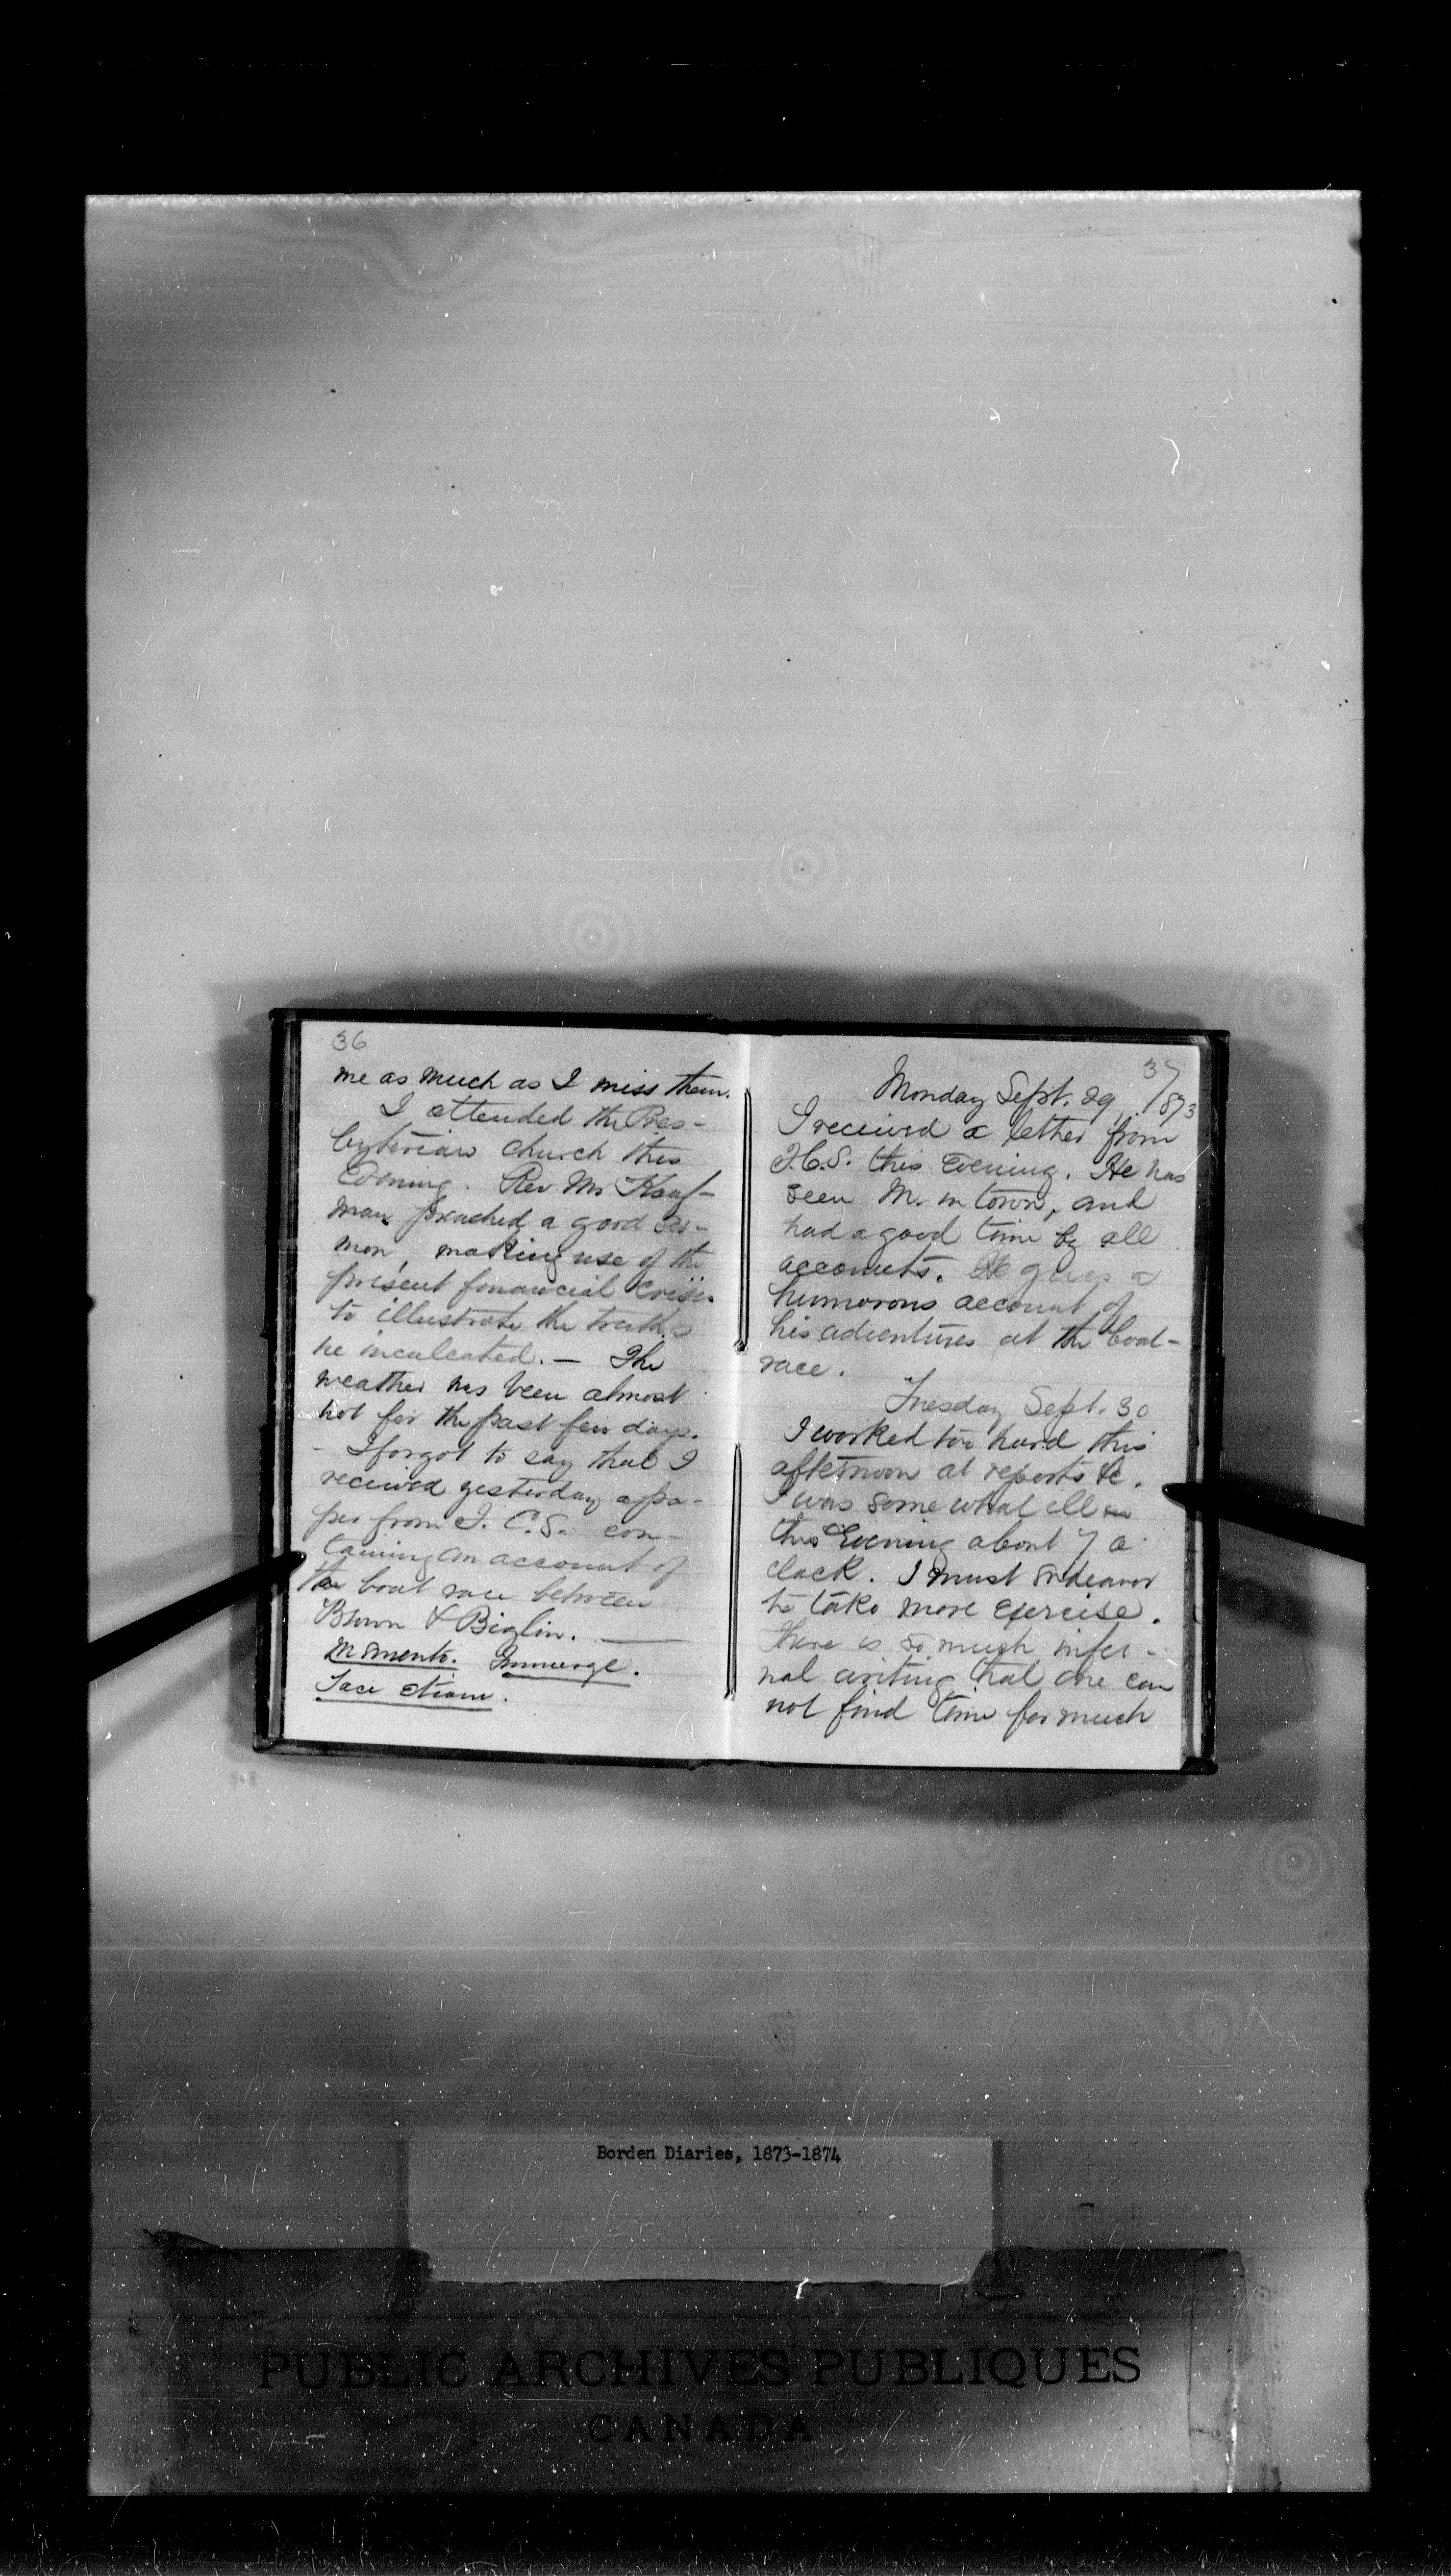 36
me as much as I miss them.
I attended the Pres-
byterian church this
Evening. Rev Mr Kauf-
man preached a good ser-
mon, making use of the
present financial crisis
to illustrate the truths
he inculcated. — The
weather has been almost
hot for the past few days.
- I forgot to say that I
received yesterday a pa-
per from J. C. S. con-
taining an account of
the boat race between
Brown & Biglin. —
Memento. Immerge.
Tace etiam.
37
Monday Sept. 29, 1873
I received a letter from
J.C.S. this Evening. He has
seen M. in town, and
had a good time by all
accounts. He gives a
humorous account of
his adventures at the boat-
race.
Tuesday Sept. 30
I worked too hard this
afternoon at reports &c.
I was somewhat ill
this Evening about 7 o'
clock. I must endeavor
to take more exercise.
There is so much infer-
nal writing that one can
not find time for much
Borden Diaries, 1873-1874
PUBLIC ARCHIVES PUBLIQUES
CANADA